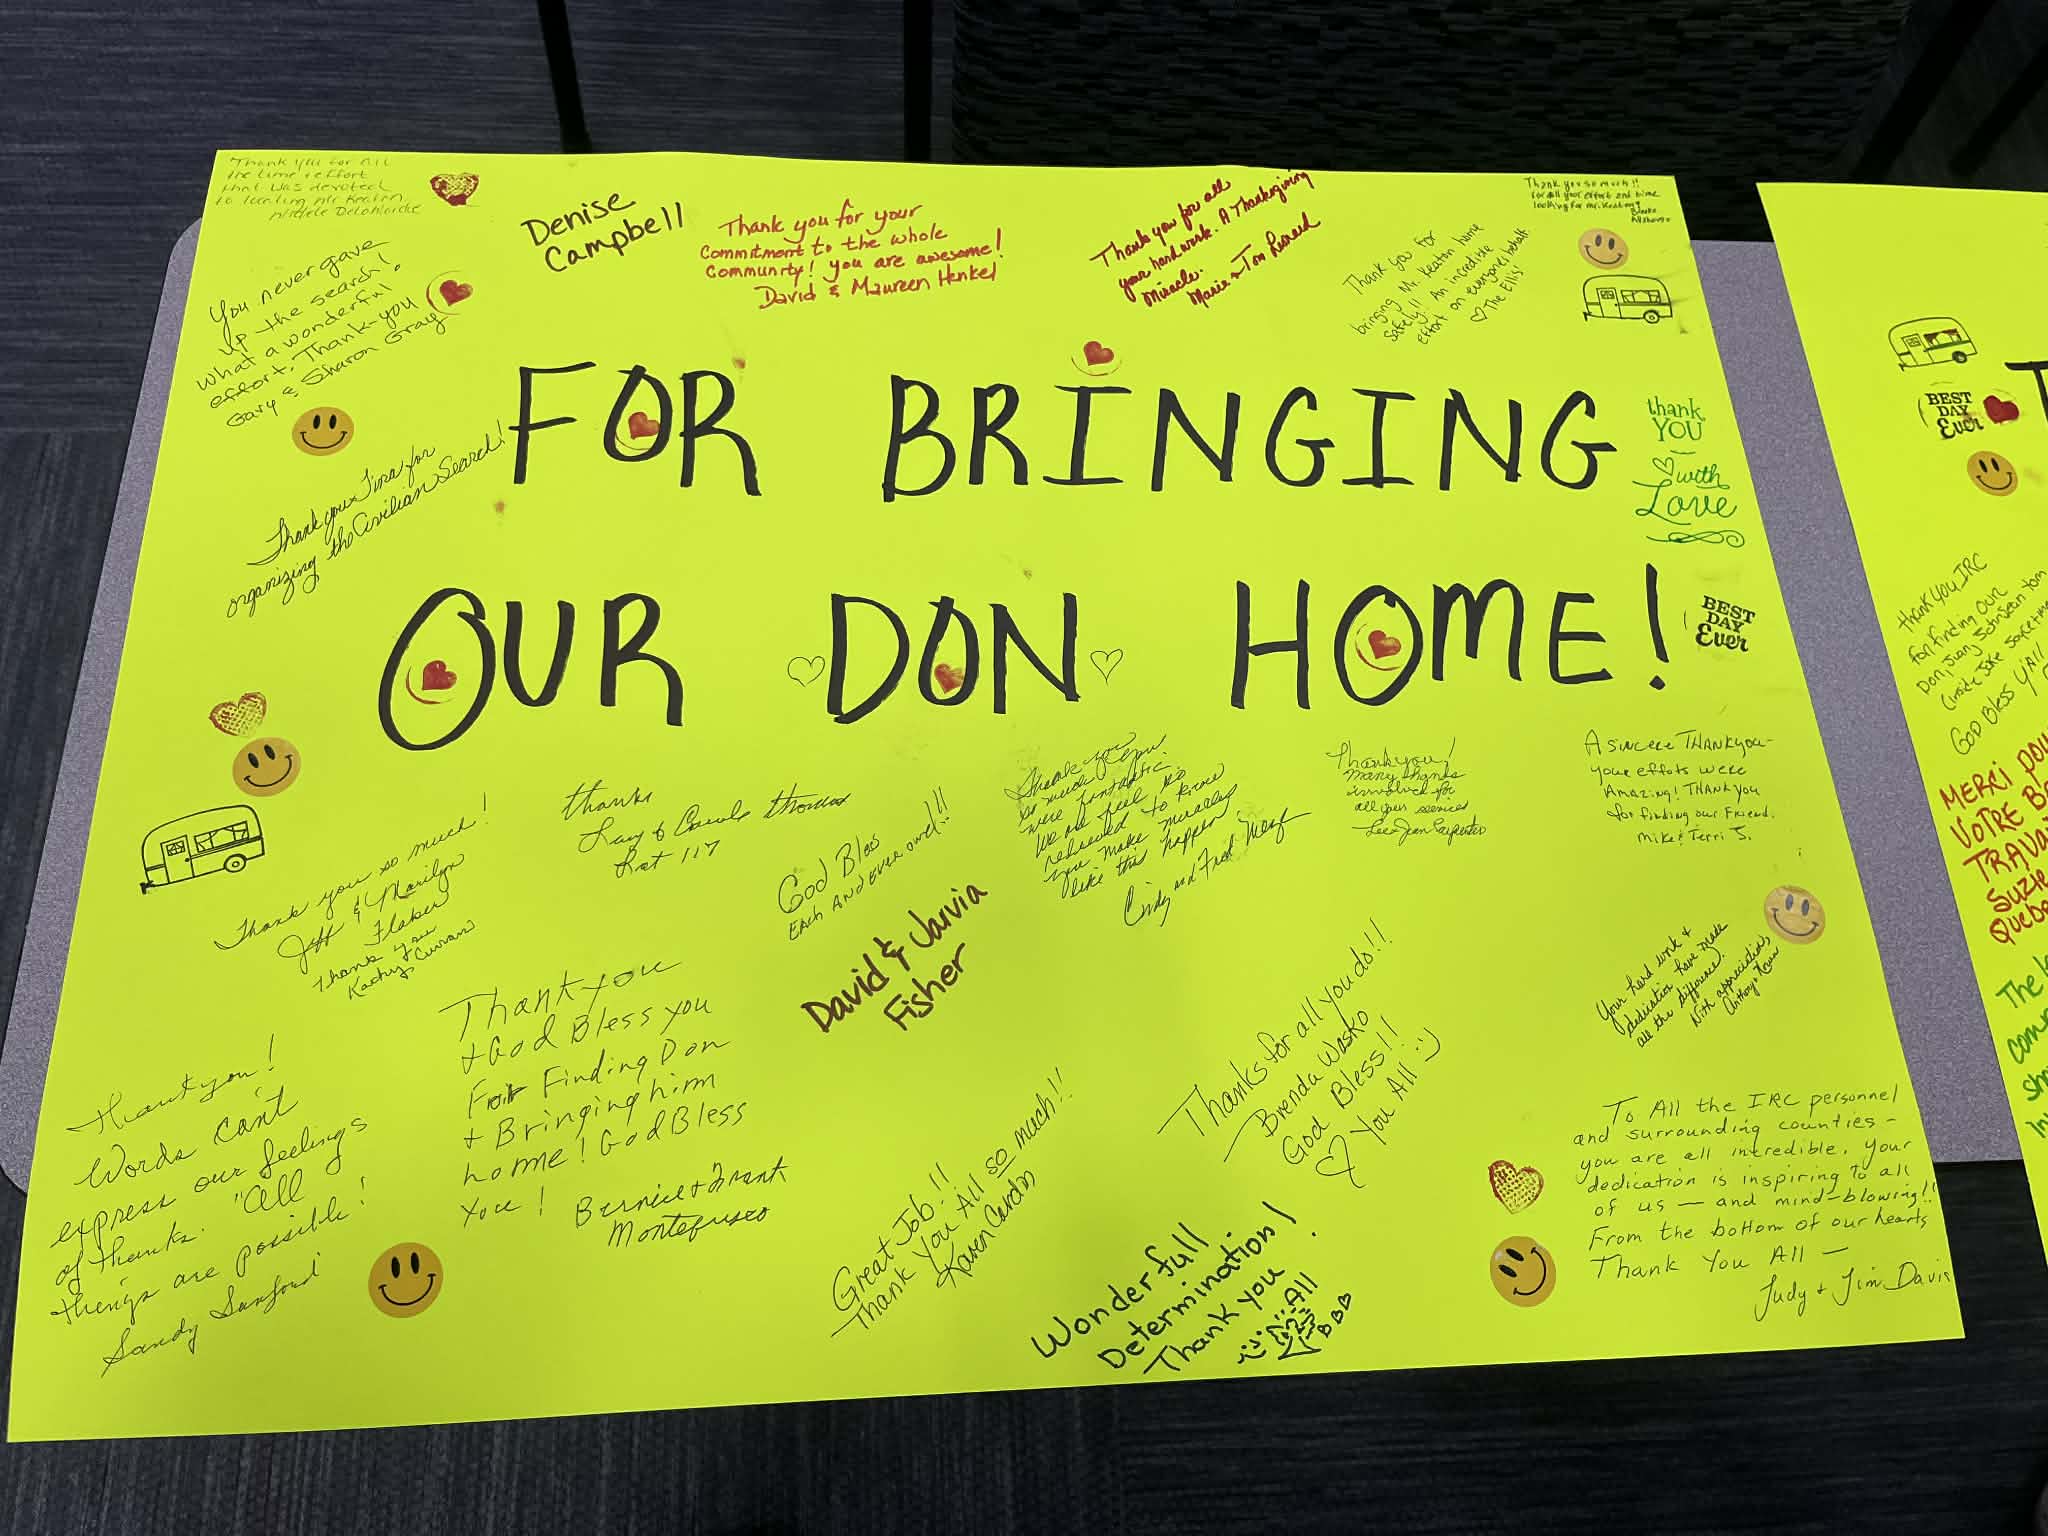 Thank you for all
the time & effort
that was devoted
to locating Mr Keaton
You never gave
up the search!
What a wonderful
effort. Thank-you
Gary & Sharon Gray
Thank you Tina for
organizing the Civilian Search!
Denise
Campbell
Thank you for your
Commitment to the whole
Community! you are awesome!
David & Maureen Henkel
Thank you for all
your hard work. A Thanksgiving
Miracle.
Marie & Tom
Thank you for
bringing Mr. Keaton home
safely!! An incredible
effort on everyones behalf.
The Ellis'
Thank you so much!!
for all your effort and time
looking for Mr. Keaton!
FOR BRINGING
OUR DON HOME!
thank
YOU
with
Love
BEST
DAY
Ever
Thank you so much!
Jeff & Marilyn
Flaker
Thank You
Kathy Curran
thanks
Larry & Carole Thomas
Lot 117
God Bless
Each and ever one!!!
David & Jarvia
Fisher
Thank you
so much. You
were fantastic.
We all feel so
relieved to know
you make miracles
like this happen
Cindy and Fred
Thank you!
Many thanks
for
all your services
A sincere THANKyou-
your effots were
Amazing! THANK you
for finding our Friend.
Mike & Terri S.
Your hard work &
dedication have made
all the difference.
With appreciation,
Anthony
Thank you!
Words can't
express our feelings
of thanks. "All
things are possible!
Sandy Sanford
Thank you
+ God Bless you
For Finding Don
+ Bringing him
home! God Bless
You!
Bernice + Frank
Montefusco
Great Job!!
Thank You All so much!!
Karen Cardas
Thanks for all you do!!
Brenda Wasko
God Bless!!
You All :)
Wonderfull
Determination!
Thank you
All
To All the IRC personnel
and surrounding counties -
you are all incredible. Your
dedication is inspiring to all
of us — and mind-blowing!!
From the bottom of our hearts
Thank You All —
Judy & Jim Davis
BEST
DAY
Ever
T
Thank you IRC
For finding our
Don, Juany
(inside joke
God Bless Y'All
MERCI pou
VOTRE B
TRAVA
Suzie
Quebe
The
com